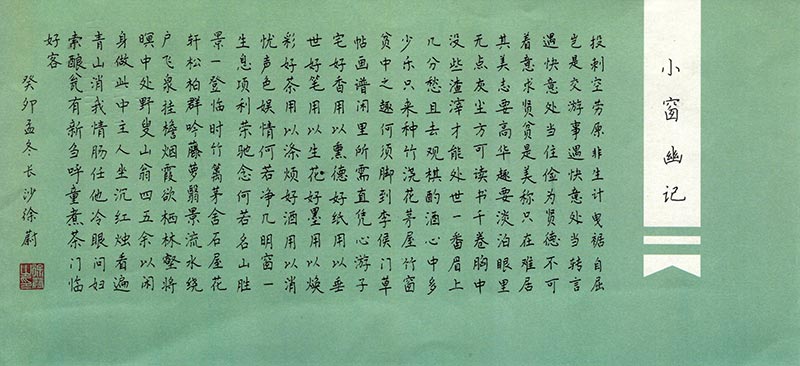 小窗幽记
投刺空劳原非生计曳裾自屈
岂是交游事遇快意处当转言
遇快意处当住俭为贤德不可
着意求贤贫是美称只在难居
其美志要高华趣要淡泊眼里
无点灰尘方可读书千卷胸中
没些渣滓才能处世一番眉上
几分愁且去观棋酌酒心中多
少乐只来种竹浇花茅屋竹窗
贫中之趣何须脚到李侯门草
帖画谱闲里所需直凭心游子
宅好香用以熏德好纸用以垂
世好笔用以生花好墨用以焕
彩好茶用以涤烦好酒用以消
忧声色娱情何若净几明窗一
生息项利荣驰念何若名山胜
景一登临时竹篱茅舍石屋花
轩松柏群吟藤萝翳景流水绕
户飞泉挂檐烟霞欲栖林壑将
暝中处野叟山翁四五余以闲
身做此中主人坐沉红烛看遍
青山消我情肠任他冷眼问妇
索酿瓮有新刍呼童煮茶门临
好客
癸卯孟冬长沙徐蔚